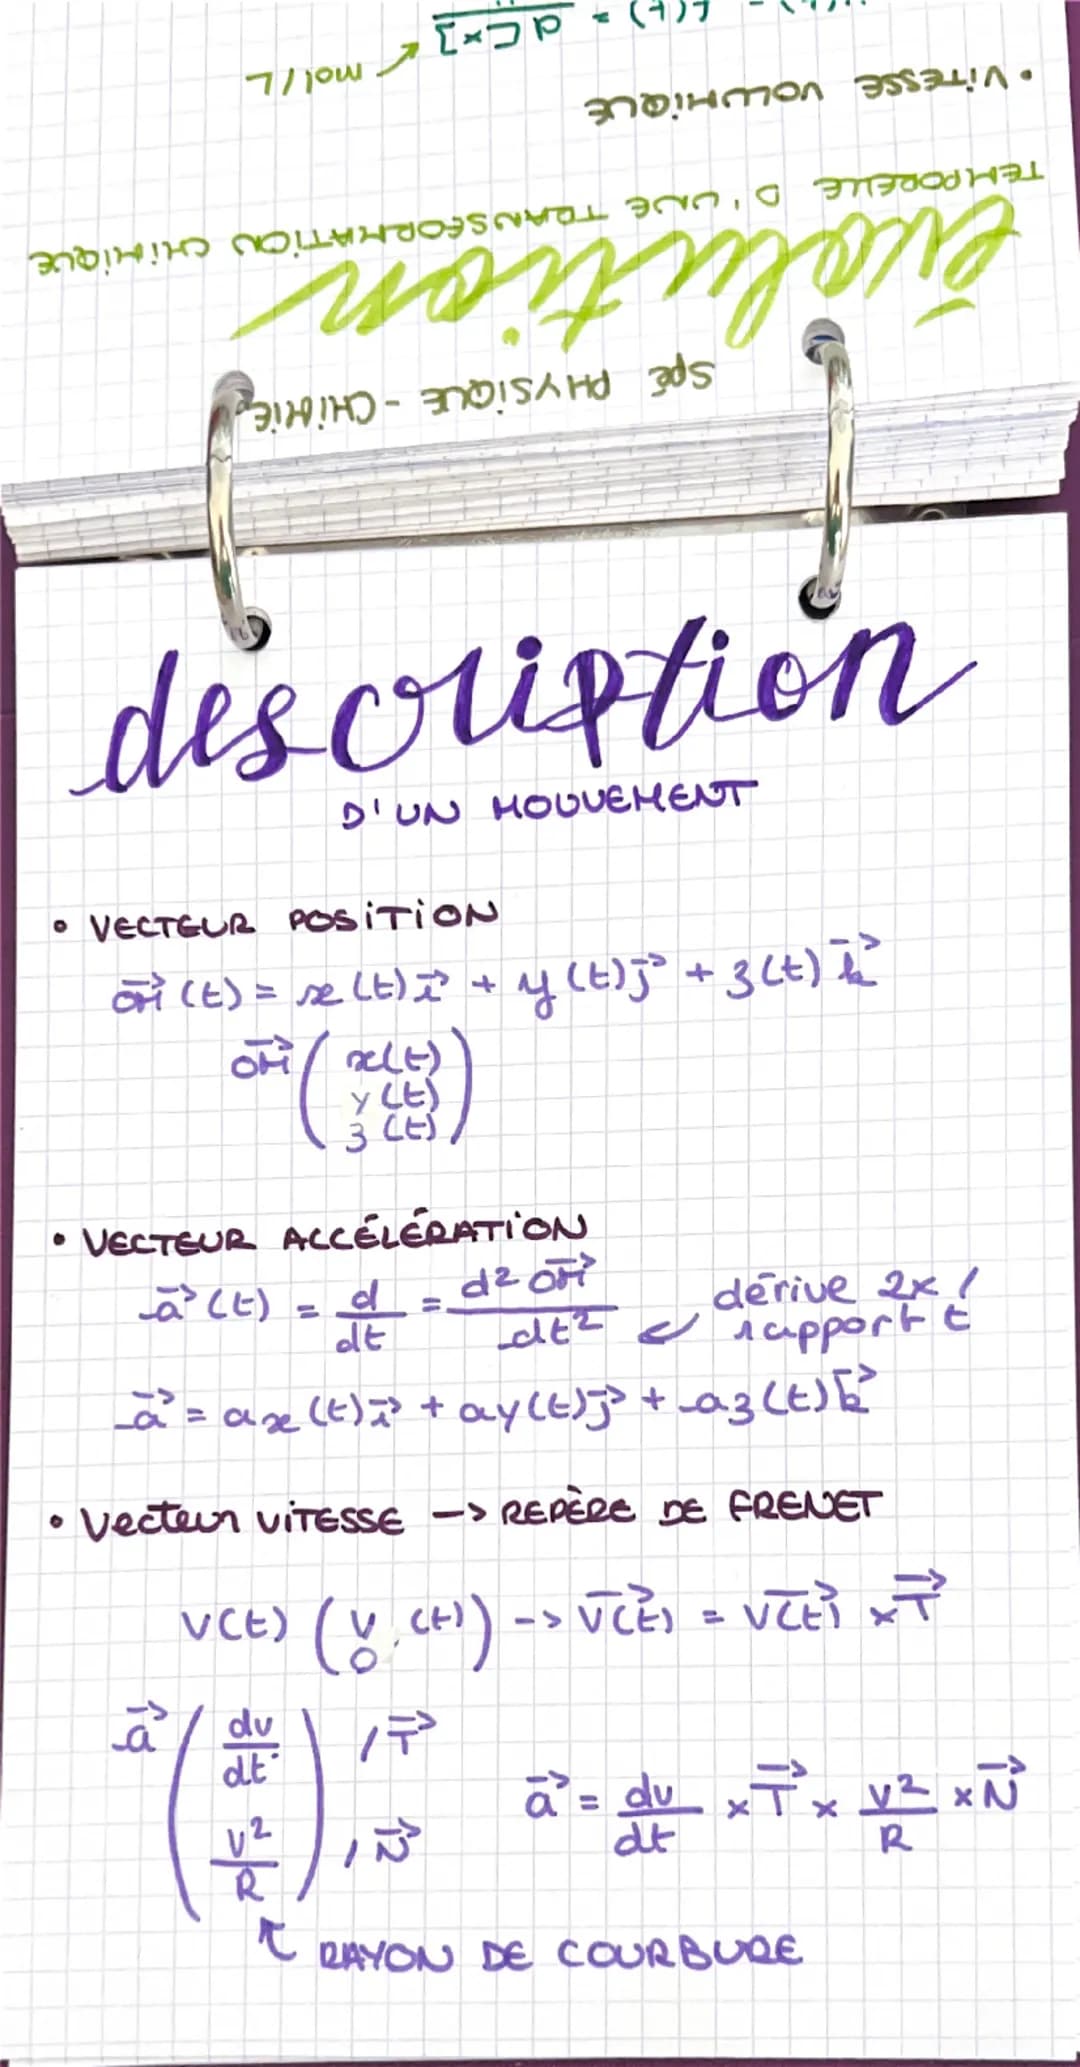 v(t) = d[x]
mol/L
• VITESSE VOLUMIQUE
TEMPORELLE D'UNE TRANSFORMATION CHIMIQUE
évolution
SPÉ PHYSIQUE - CHIMIE
description
D'UN MOUVEMENT
• VECTEUR POSITION
OM→ (t) = x(t) i→ + y(t) j→ + z(t) k→
OM→ ( x(t)
y(t)
z(t) )
• VECTEUR ACCÉLÉRATION
a→(t) = d/dt = d² OM→/dt² ↙ dérive 2x /
rapport t
a→ = ax(t) i→ + ay(t) j→ + az(t) k→
• Vecteur VITESSE -> REPÈRE DE FRENET
V(t) ( V(t)
0 ) -> V(t)→ = V(t)→ x T→
a→ ( dv/dt ) / T→
( v²/R ) / N→
a→ = dv/dt x T→ x v²/R x N→
↖ RAYON DE COURBURE